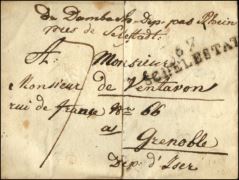 de Dambach dep. bas Rhein
près de Selestadt
67
SCHELESTAT
A Monsieur
Monsieur de Ventavon
rue de france No 66
a Grenoble
Dep. d'Iser